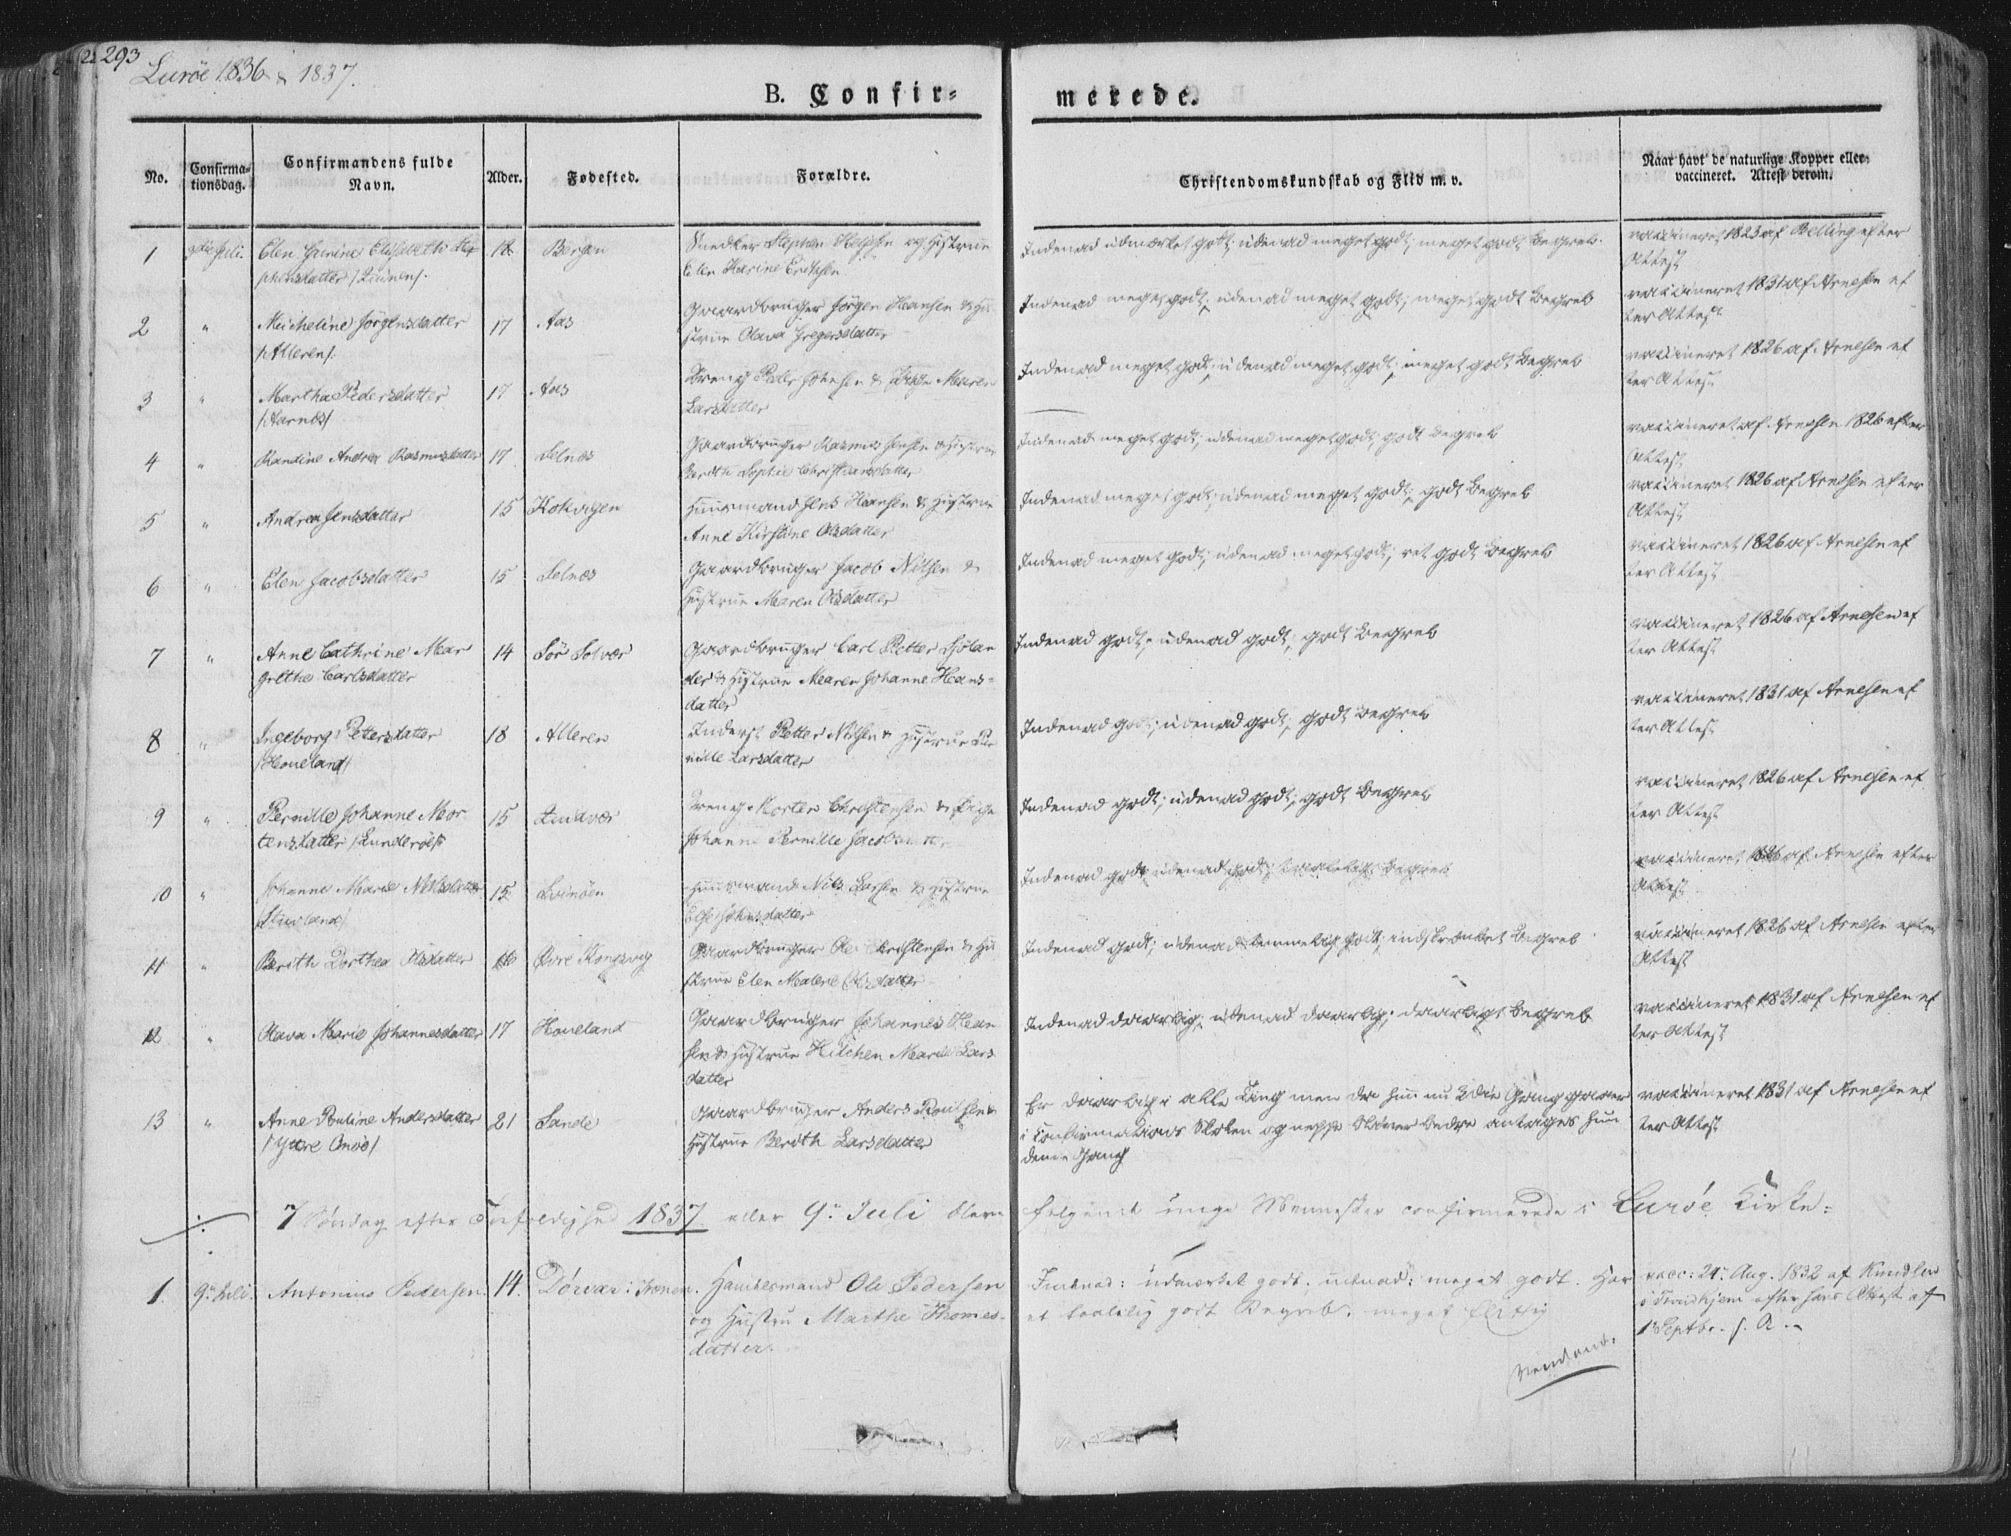 293
Lurøe 1836 & 1837.
B. Confir=
merede.
No.
Confirma-
tionsdag.
Confirmandens fulde
Navn.
Alder.
Fødested.
Forældre.
Christendomskundskab og Flid m. v.
Naar havt de naturlige Kopper eller
vaccineret. Attest derom.
1 Juli. Elen Elisabeth Ste
phensdatter 18 Bergen Snedker Stephen og Hustrue
Elen Karine
Indenad udmærket godt; udenad meget godt; meget godt Begreb.
vaccineret 1823 af Belling efter
Attest
2 " Micheline Jørgensdatter
/Alleren/. 17 Aas Gaardbruger Jørgen Hansen & Hu
strue Olava Gregersdatter
Indenad meget godt; udenad meget godt; meget godt Begreb
vaccineret 1831 af Arnesen ef
ter Attest
3 " Martha Pedersdatter
/Aarnes/ 17 Aas Dreng Peder Johnsen & Pige Maren
Larsdatter
Indenad meget godt; udenad meget godt; meget godt Begreb
vaccineret 1826 af Arnesen ef
ter Attest
4 " Randine Andrea Rasmusdatter 17 Selnes Gaardbruger Rasmus Jensen & Hustrue
Berith Sophie Christiansdatter
Indenad meget godt; udenad meget godt; godt Begreb
vaccineret af Arnesen 1826 efter
Attest
5 " Andrea Jensdatter 15 Kokvigen Huusmand Jens Hansen & Hustrue
Anne Kirstine Olsdatter
Indenad meget godt; udenad meget godt; godt Begreb
vaccineret 1826 af Arnesen efter
Attest
6 " Elen Jacobsdatter 15 Selnes Gaardbruger Jacob Nilsen &
Hustrue Maren Olsdatter
Indenad meget godt; udenad meget godt; ret godt Begreb
vaccineret 1826 af Arnesen ef
ter Attest
7 " Anne Cathrine Mar
grethe Carlsdatter 14 Sør Solvær Gaardbruger Carl Petter Sjølan
der & Hustrue Maren Johanne Hans=
datter
Indenad godt; udenad godt; godt Begreb
vaccineret 1826 af Arnesen ef
ter Attest
8 " Ingeborg Petersdatter
/Houeland/ 18 Alleren Inderst Petter Nilsen & Hustrue Per
nille Larsdatter
Indenad godt; udenad godt; godt Begreb
vaccineret 1831 af Arnesen ef
ter Attest
9 " Pernille Johanne Mor
tensdatter /Lunderøe/ 15 Dreng Morten Christensen & Pige
Johanna Pernille Jacobsdatter
Indenad godt; udenad godt; godt Begreb
vaccineret 1826 af Arnesen ef
ter Attest
10 " Johanne Marie Nilsdatter 15 Huusmand Nils Larsen & Hustrue
Else Johnsdatter
Indenad godt; udenad godt; taaleligt Begreb
vaccineret 1826 af Arnesen efter
Attest
11 " Berith Dorthea Olsdatter 16 Øvre Kongsvig Gaardbruger Ole Christensen & Hu
strue Elen Malene Olsdatter
Indenad godt; udenad temmelig godt; indskrænket Begreb
vaccineret 1826 af Arnesen efter
Attest
12 " Olava Marie Johannesdatter 17 Houeland Gaardbruger Johannes Han
sen & Hustrue Hilchen Marie Lars
datter
Indenad daarlig; udenad daarlig; daarligt Begreb
vaccineret 1831 af Arnesen ef
ter Attest
13 " Anne Pauline Andersdatter
/Yttre Onøe/ 21 Sande Gaardbruger Anders Poulsen &
Hustrue Berith Larsdatter
Er daarlig i alle Ting men da hun nu 3die Gang gaaer
i Confirmations Skolen og neppe bliver bedre antages hun
denne Gang
vaccineret 1831 af Arnesen ef
ter Attest
7 Søndag efter Trefoldighed 1837 eller 9de Juli bleve følgende unge Mennesker confirmerede i Lurøe Kirke=
1. 9de Juli. Antonius Pedersen. 14. Dørvær i Trænen. Handelsmand Ole Pedersen
og Hustru Marthe Thomes-
datter.
Indenad: udmærket godt; udenad: meget godt. Har
et taalelig godt Begreb. meget flittig
vacc: 24. Aug. 1832 af Knudsen
i Trondhjem efter hans Attest af
1 Septbr. s. A.